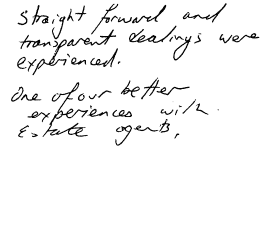 Straight forward and
transparent dealings were
experienced.
One of our better
experiences with
Estate agents,